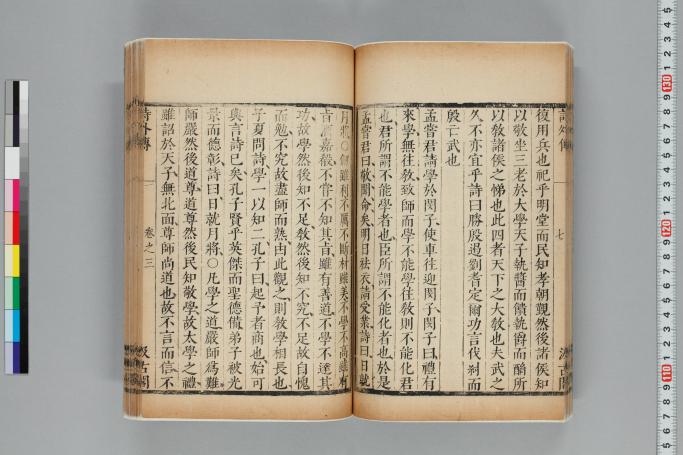 詩外傳 七 汲古閣
復用兵也祀乎明堂而民知孝朝覲然後諸侯知
以敬坐三老於大學天子執醬而饋執爵而酳所
以敎諸侯之悌也此四者天下之大敎也夫武之
久不亦宜乎詩曰勝殷遏劉耆定爾功言伐紂而
殷亡武也
孟嘗君請學於閔子使車往迎閔子閔子曰禮有
來學無往敎致師而學不能學往敎則不能化君
也君所謂不能學者也臣所謂不能化者也於是
孟嘗君曰敬聞命矣明日袪衣請受業詩曰日就
月將○劍雖利不厲不斷材雖美不學不高雖有
旨酒嘉殽不嘗不知其旨雖有善道不學不達其
功故學然後知不足敎然後知不究不足故自愧
而勉不究故盡師而熟由此觀之則敎學相長也
子夏問詩學一以知二孔子曰起予者商也始可
與言詩已矣孔子賢乎英傑而聖德備弟子被光
景而德彰詩曰日就月將○凡學之道嚴師爲難
師嚴然後道尊道尊然後民知敬學故太學之禮
雖詔於天子無北面尊師尚道也故不言而信不
詩外傳 卷之三 汲古閣